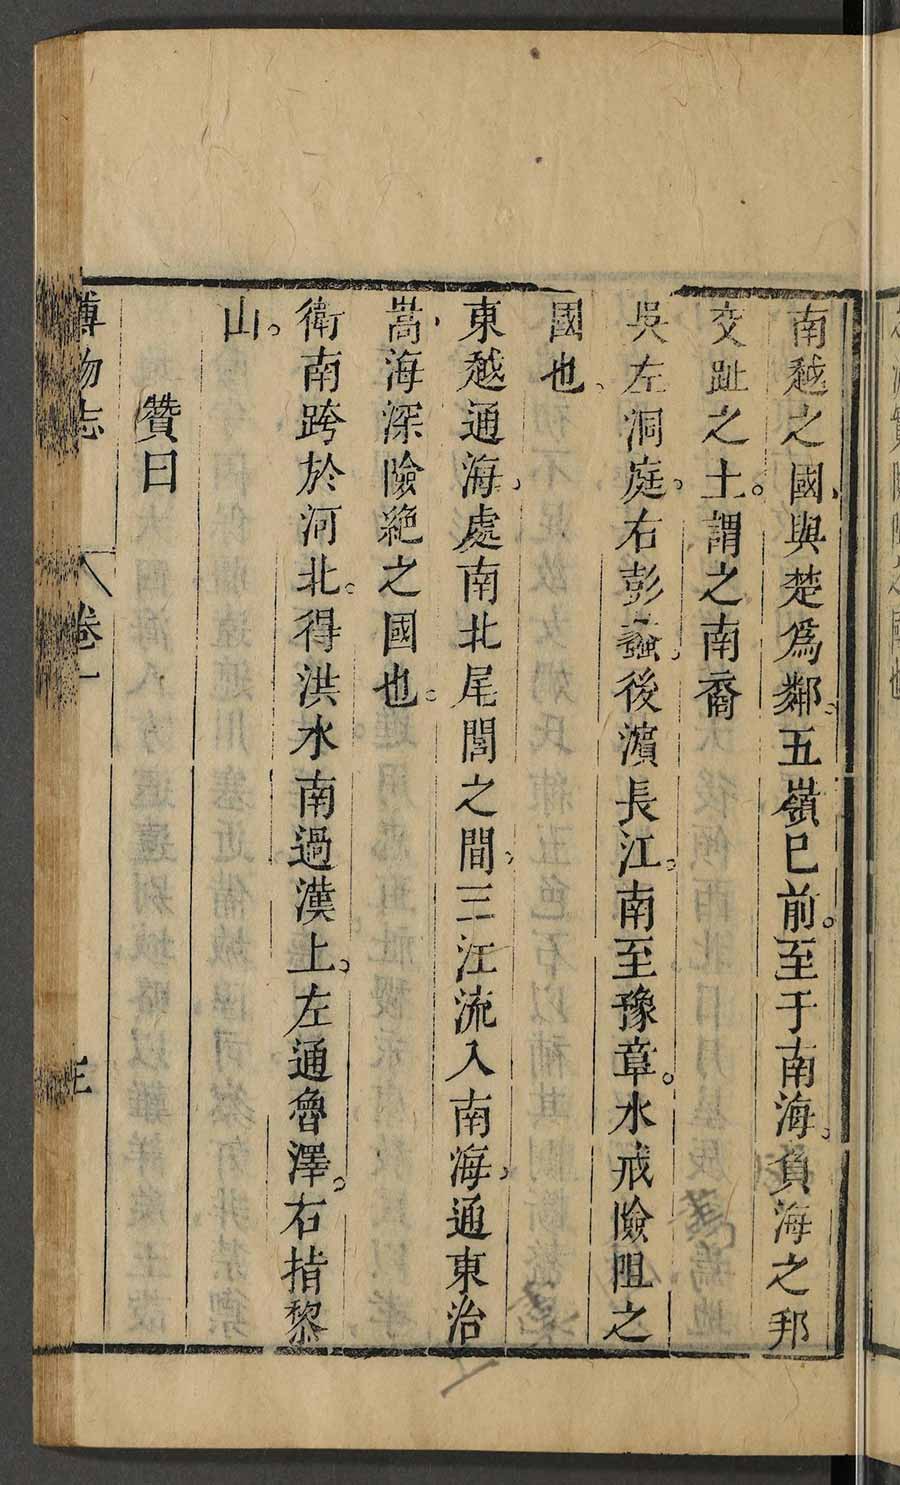 南越之國與楚爲鄰五嶺巳前至于南海負海之邦
交趾之土謂之南裔
吳左洞庭右彭蠡後濱長江南至豫章水戒險阻之
國也
東越通海處南北尾閭之間三江流入南海通東治
嵩海深險絶之國也
衛南跨於河北得洪水南過漢上左通魯澤右指黎
山
贊曰
博物志 卷一